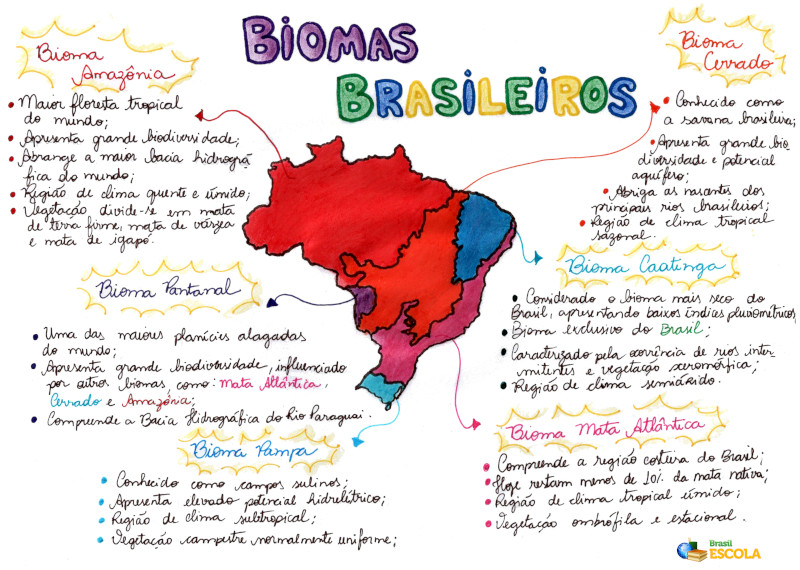 BIOMAS
BRASILEIROS
Bioma
Amazônia
Maior floresta tropical
do mundo;
Apresenta grande biodiversidade;
Abrange a maior bacia hidrográ
fica do mundo;
Região de clima quente e úmido;
Vegetação divide-se em mata
de terra firme, mata de várzea
e mata de igapó.
Bioma
Cerrado
Conhecido como
a savana brasileira;
Apresenta grande bio
diversidade e potencial
aquífero;
Abriga as nascentes dos
principais rios brasileiros;
Região de clima tropical
sazonal.
Bioma Pantanal
Uma das maiores planícies alagadas
do mundo;
Apresenta grande biodiversidade, influenciado
por outros biomas, como: Mata Atlântica,
Cerrado e Amazônia;
Compreende a Bacia Hidrográfica do Rio Paraguai.
Bioma Caatinga
Considerado o bioma mais seco do
Brasil, apresentando baixos índices pluviométricos;
Bioma exclusivo do Brasil;
Caracterizado pela ocorrência de rios inter
mitentes e vegetação xeromórfica;
Região de clima semiárido.
Bioma Pampa
Conhecido como campos sulinos;
Apresenta elevado potencial hidrelétrico;
Região de clima subtropical;
Vegetação campestre normalmente uniforme;
Bioma Mata Atlântica
Compreende a região costeira do Brasil;
Hoje restam menos de 10% da mata nativa;
Região de clima tropical úmido;
Vegetação ombrófila e estacional.
Brasil
ESCOLA